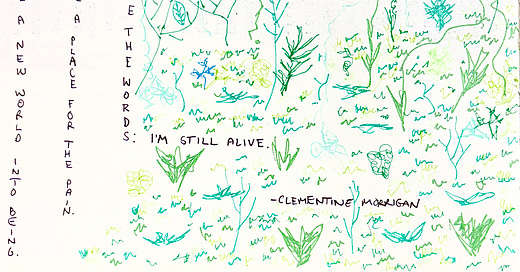 A NEW WORLD INTO BEING.
A PLACE FOR THE PAIN.
E THE WORDS:
I'M STILL ALIVE.
-CLEMENTINE MORRIGAN